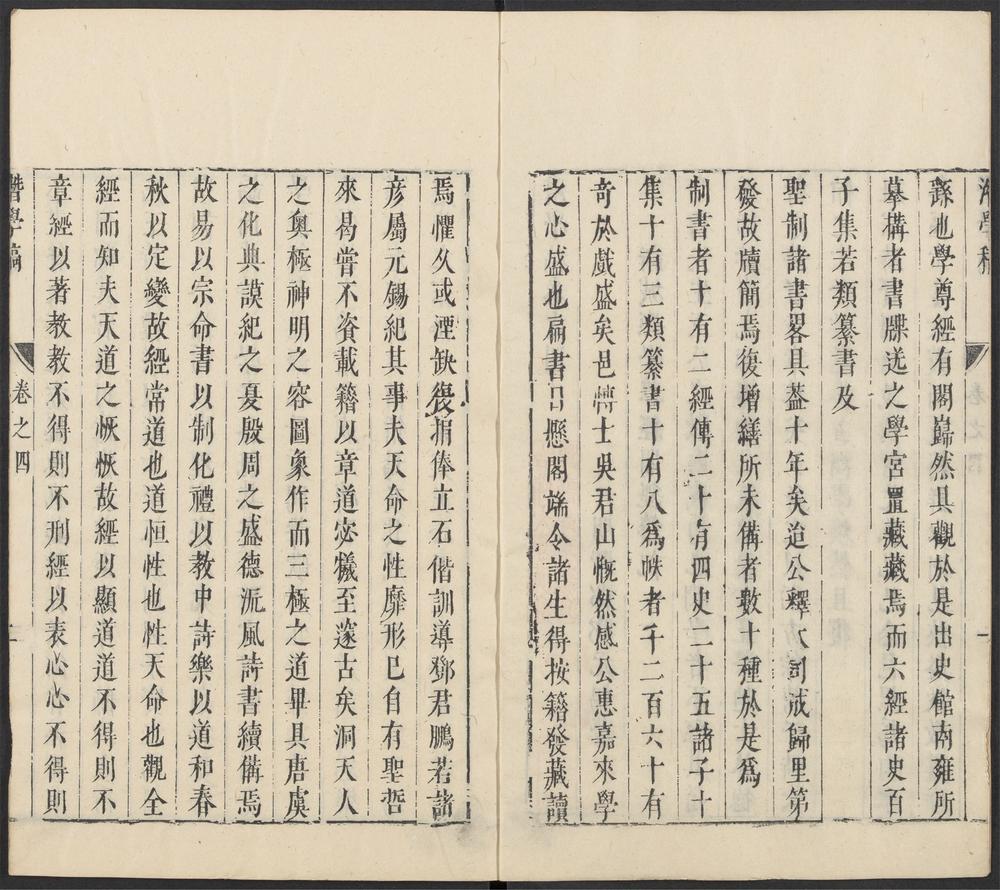 繇也學尊經有閣巋然具觀於是出史館南雍所
摹搆者書牒送之學宮置藏藏焉而六經諸史百
子集若類纂書及
聖制諸書畧具葢十年矣迨公釋大司成歸里第
發故牘簡焉復增繕所未備者數十種於是爲
制書者十有二經傳二十有四史二十五諸子十
集十有三類纂書十有八爲帙者千二百六十有
奇於戲盛矣邑博士吳君山慨然感公惠嘉來學
之心盛也扁書日懸閣端令諸生得按籍發藏讀
焉懼久或湮缺復捐俸立石偕訓導鄧君鵬若諸
彥屬元錫紀其事夫天命之性靡形巳自有聖哲
來曷嘗不資載籍以章道宓犧至邃古矣洞天人
之奧極神明之容圖象作而三極之道畢具唐虞
之化典謨紀之夏殷周之盛德沠風詩書續備焉
故易以宗命書以制化禮以教中詩樂以道和春
秋以定變故經常道也道恒性也性天命也觀全
經而知夫天道之恢恢故經以顯道道不得則不
章經以著教教不得則不刑經以表心心不得則
潛學稿
卷之四